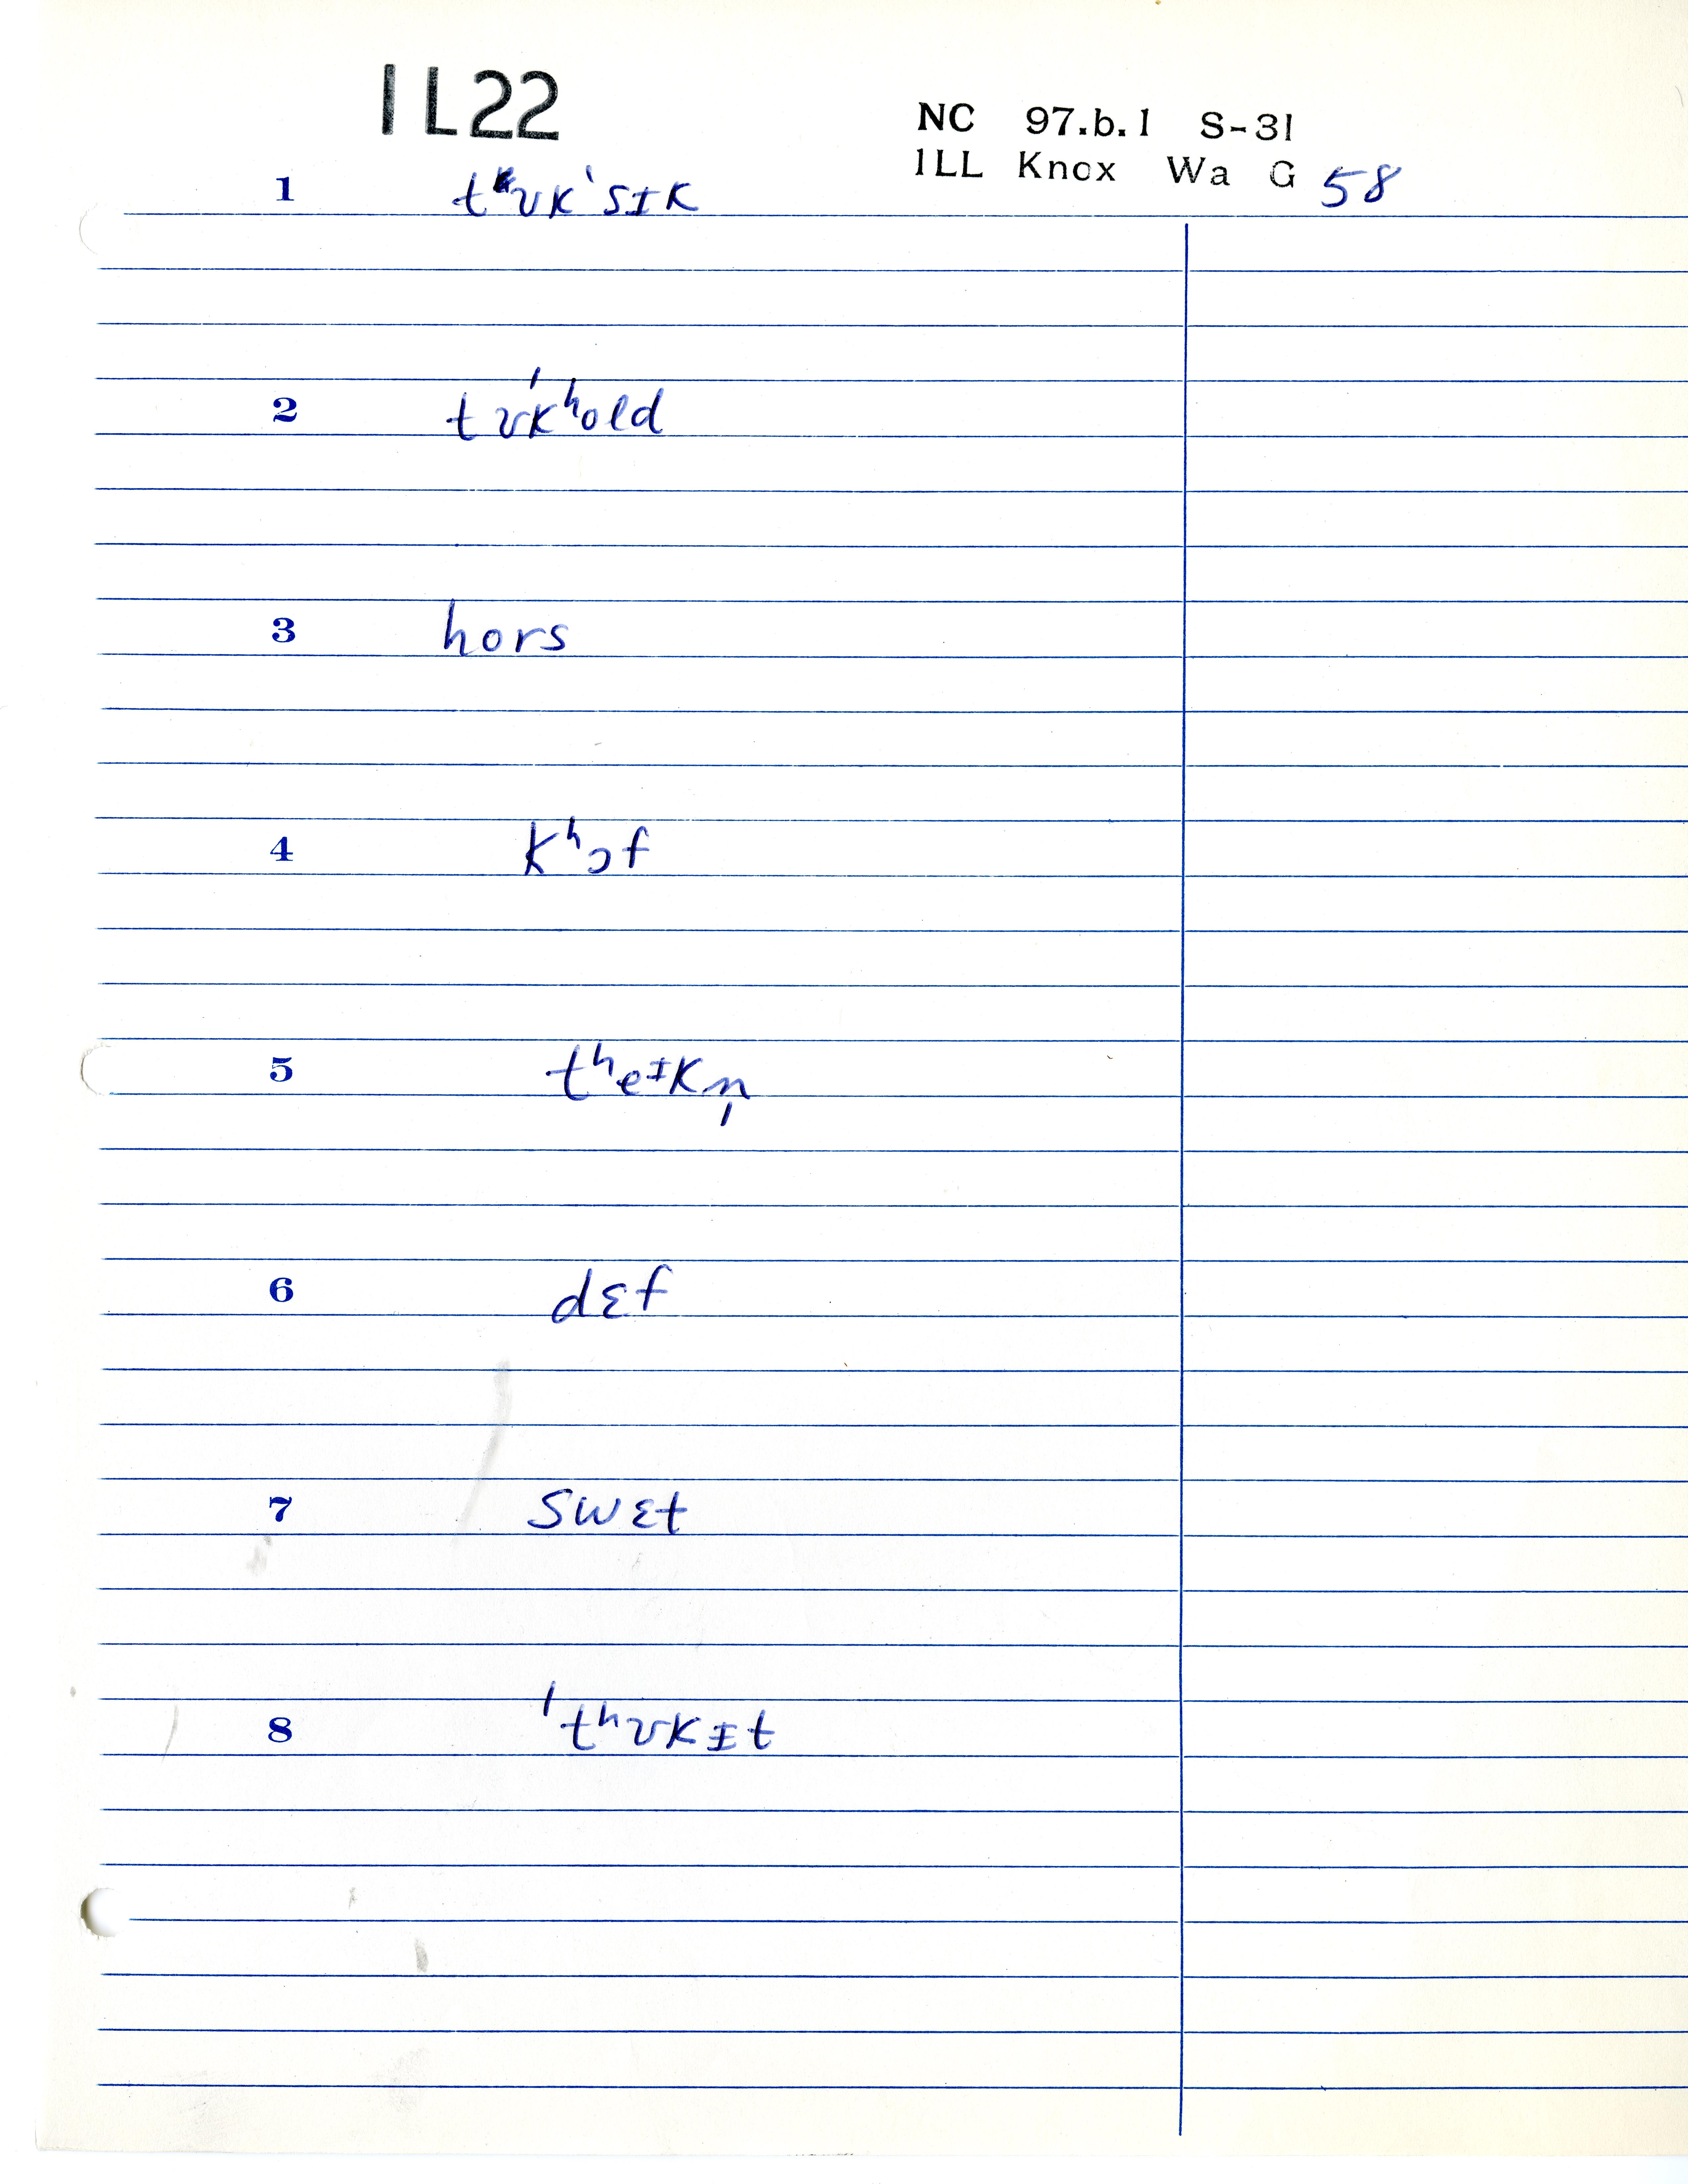 1L22
NC 97.b.1 S-31
ILL Knox Wa G 58
1 tʰʊkˈsɪk
2 tʊ́kʰold
3 hors
4 kʰɔf
5 tʰeᴵkn̩
6 dɛf
7 swɛt
8 ˈtʰʊkɪt